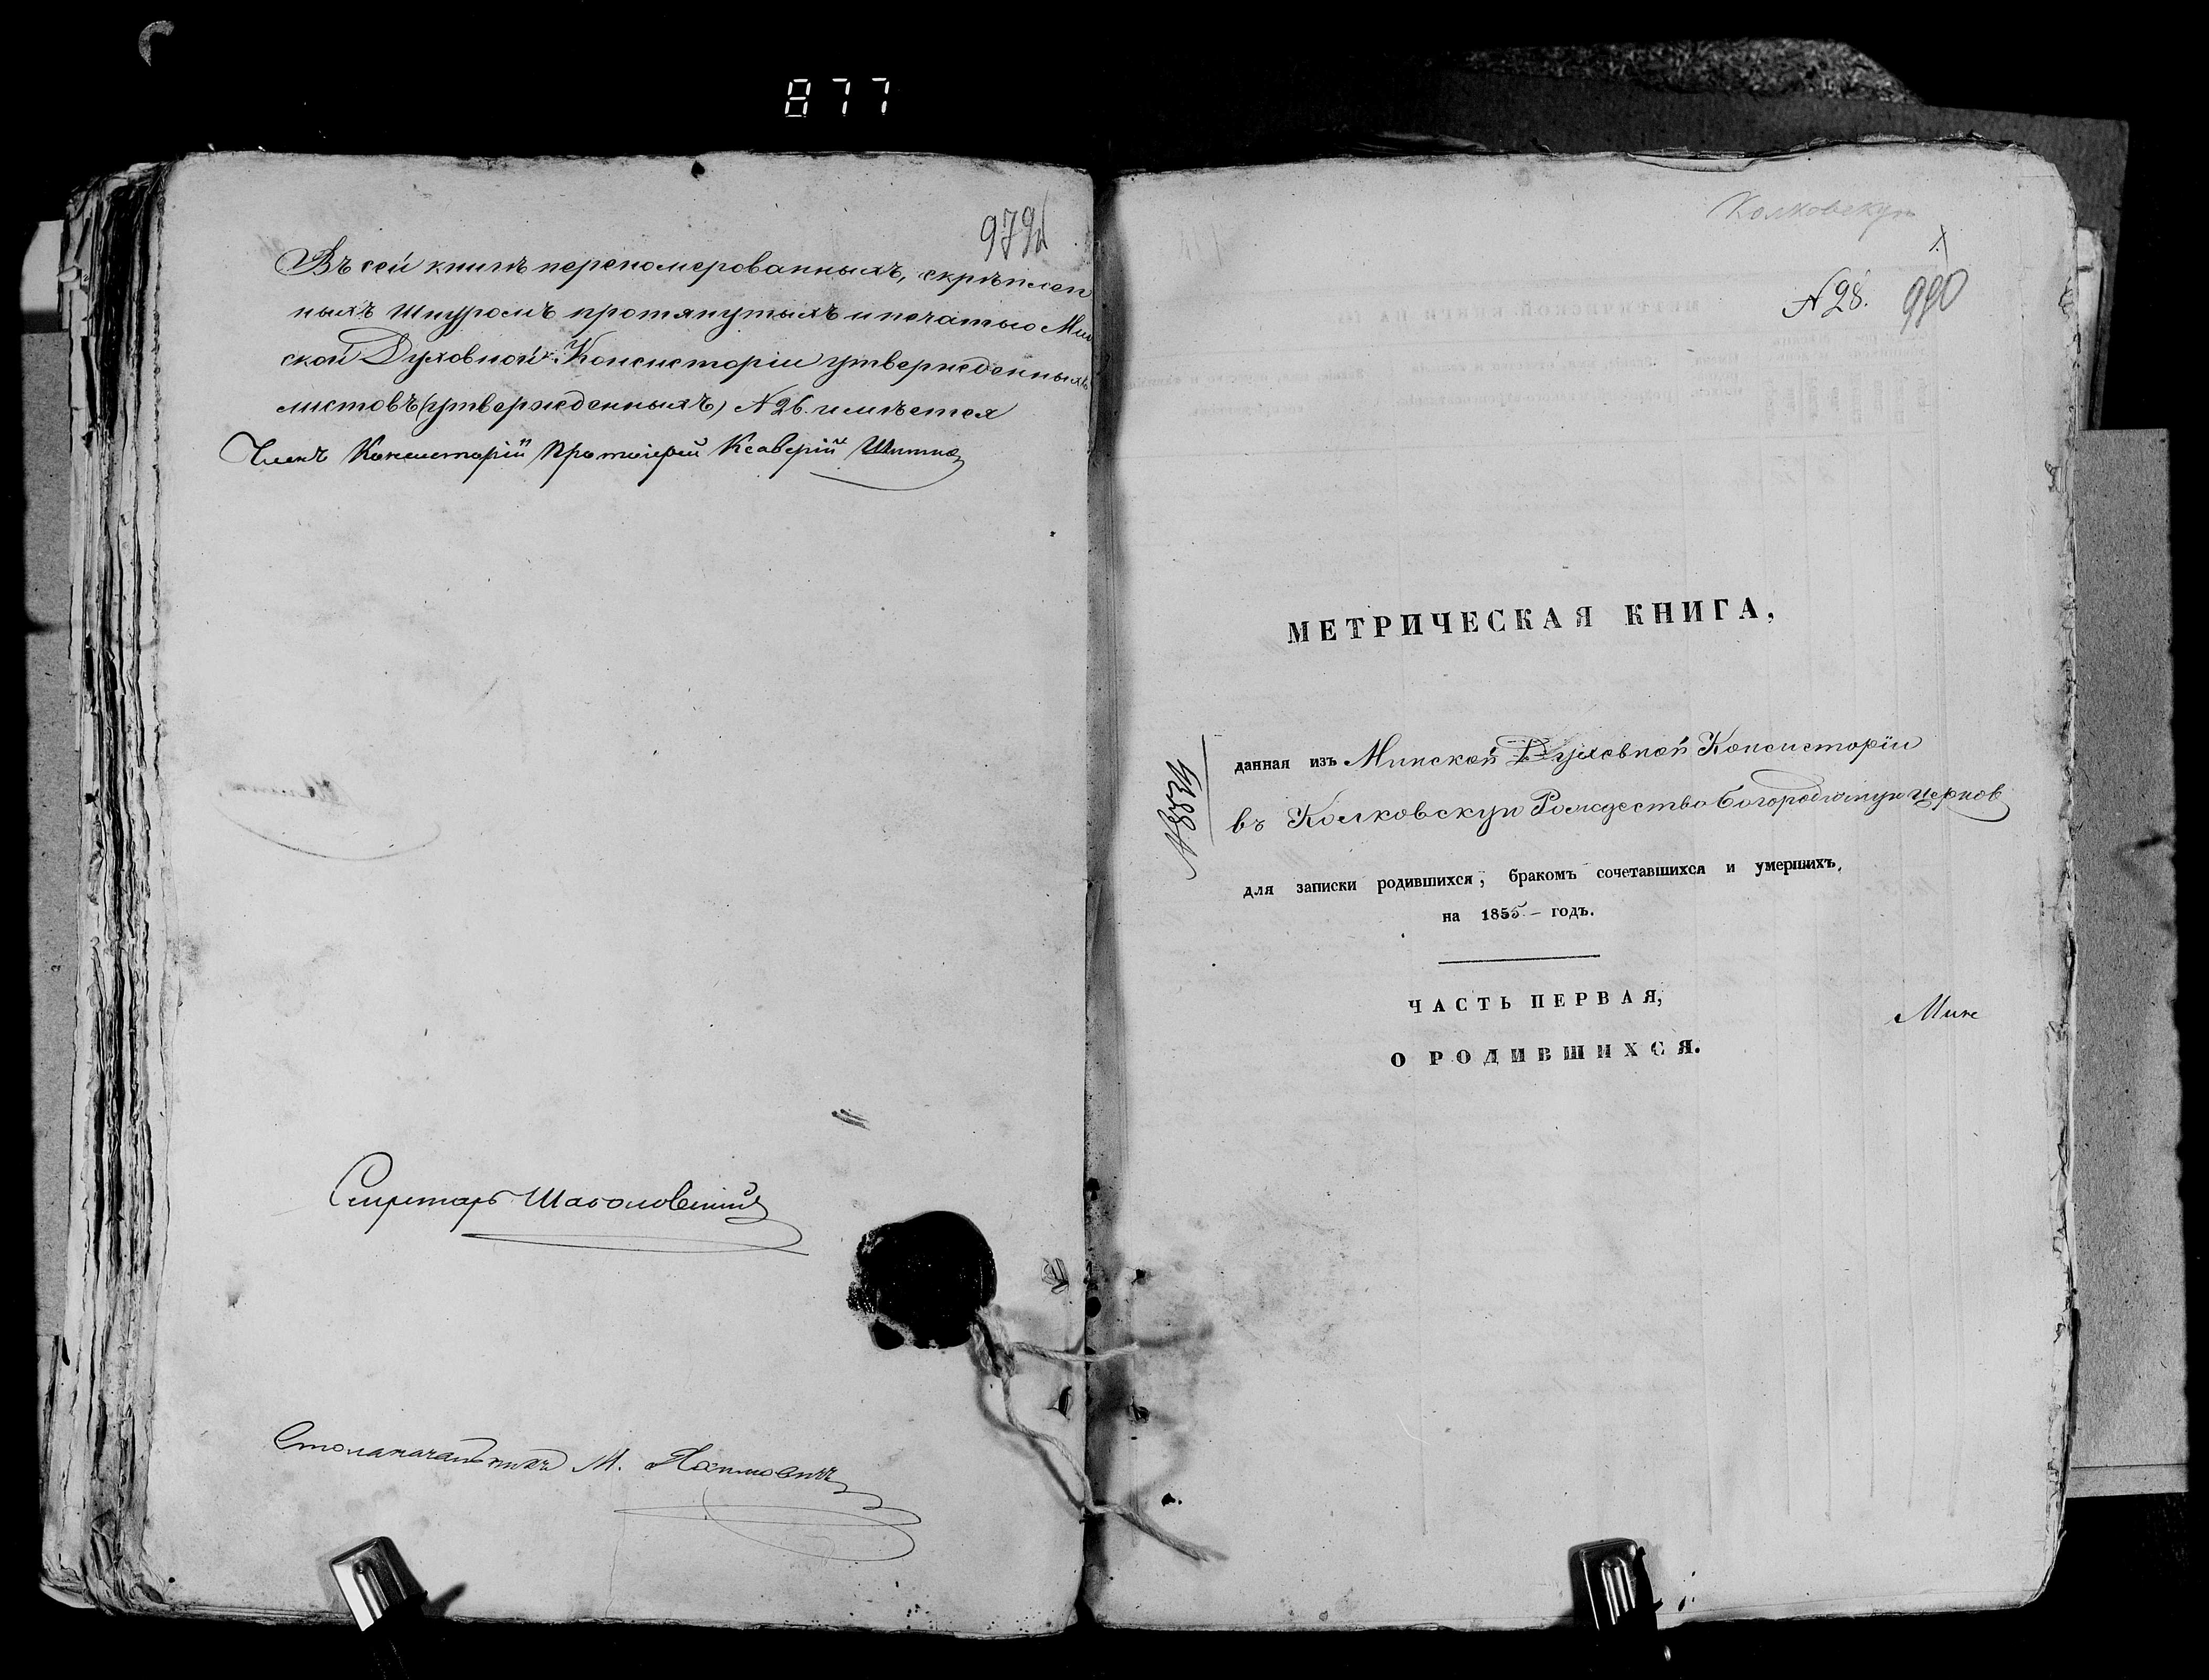 877
Въ сей книгѣ перепомерованныхъ, скрѣплен
ныхъ шнуромъ протянутыхъ и печатью Мин
ской Духовной Консисторіи утвержденныхъ
листовъ (утвержденныхъ) N 26. имѣется
Членъ Консисторіи Протоіерей Ксаверій
Секретарь
Столоначальникъ М.
Колковскую
N 28. 980
МЕТРИЧЕСКАЯ КНИГА,
данная изъ Минской Духовной Консисторіи
въ Колковскую Рождество Богородичную церков
N 8834
для записки родившихся, бракомъ сочетавшихся и умершихъ,
на 1855 – годъ.
ЧАСТЬ ПЕРВАЯ,
Мин
О РОДИВШИХСЯ.